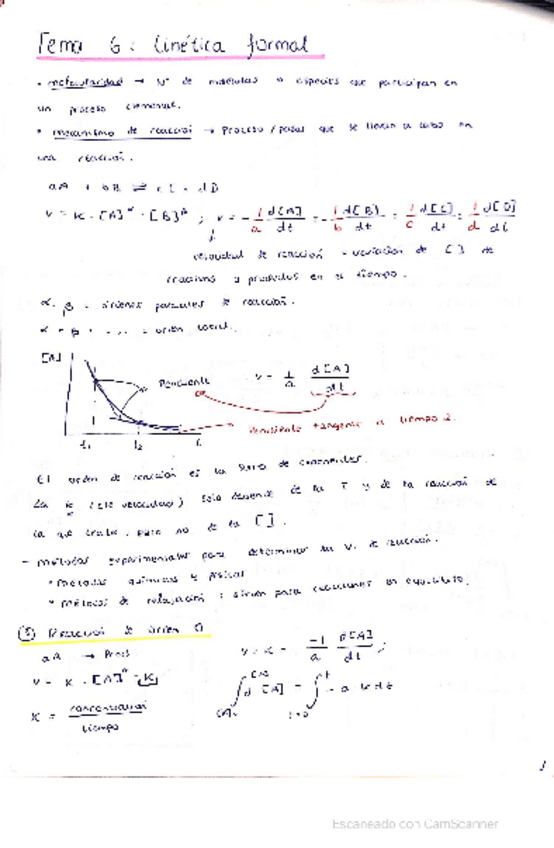 Tema 6: Cinética formal
• molecularidad → Nº de moléculas o especies que participan en
un proceso elemental.
• mecanismo de reacción → Proceso / pasos que se llevan a cabo en
una reacción.
aA + bB ⇌ cC + dD
v = K · [A]^α · [B]^β ; v = -1/a d[A]/dt = -1/b d[B]/dt = 1/c d[C]/dt = 1/d d[D]/dt
velocidad de reacción = variación de [ ] de
reactivos y productos en el tiempo.
α, β = órdenes parciales de reacción.
α + β + ... = orden total.
[A]
Pendiente
v = 1/a d[A]/dt
t₁ t₂ t
Pendiente tangente a tiempo 2.
El orden de reacción es la suma de exponentes.
La K (cte velocidad) solo depende de la T y de la reacción de
la que trate, pero no de la [ ].
- métodos experimentales para determinar la v. de reacción.
• métodos químicos y físicos
• métodos de relajación: sirven para reacciones en equilibrio.
Reacción de orden 0
aA → Prod.
v = K · [A]^0 = K
K = concentración / tiempo
v = K = -1/a d[A]/dt ;
∫ d[A] = ∫ - a k dt
[A]₀ [A] t=0 t
1
Escaneado con CamScanner